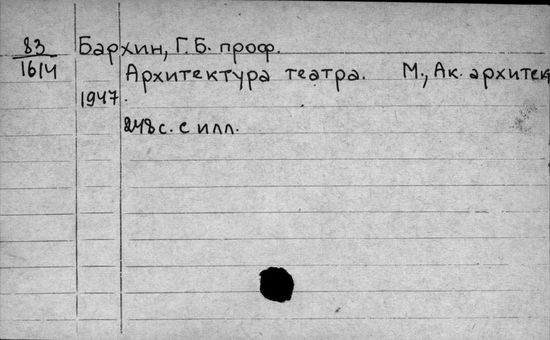 83 Бархин, Г.Б. проф.
1614 Архитектура театра. М., Ак. архитек
1947.
248 с. с илл.